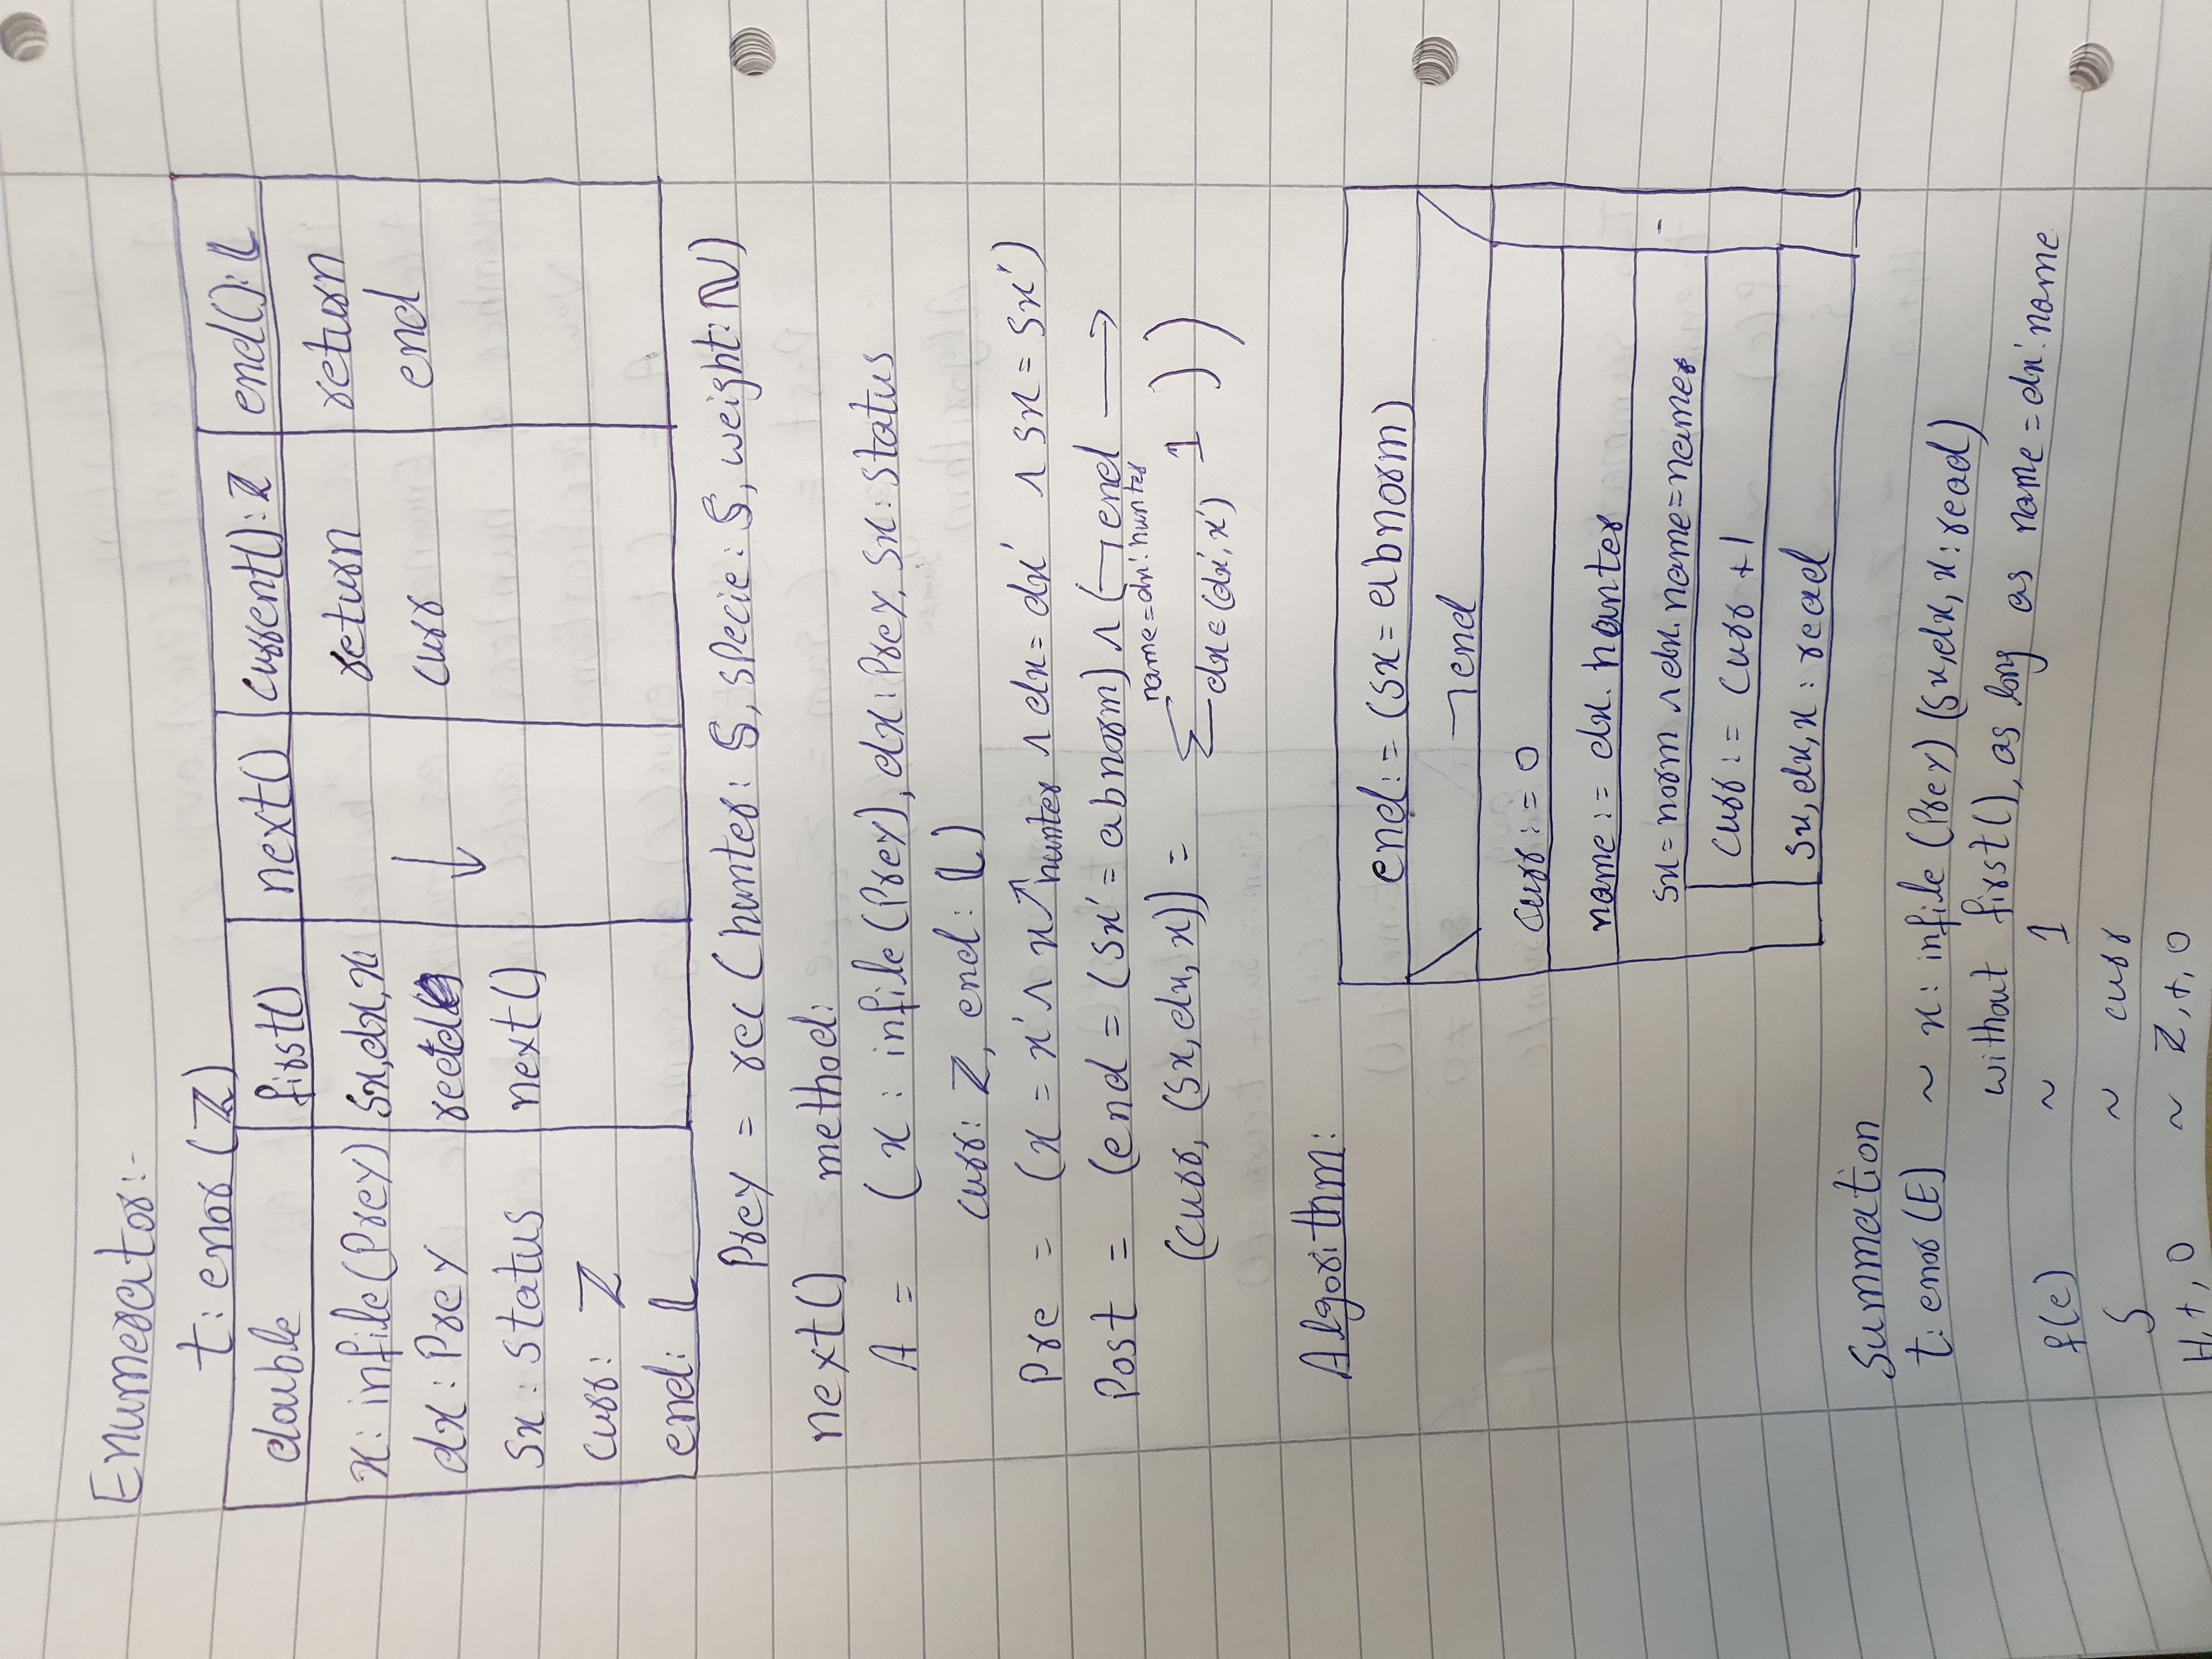 Enumerator:-
t: enor (ℤ)
double first() next() current(): ℤ end(): 𝕃
x: infile (Prey) sx, dx, x: return return
dx: Prey read ↓ curr end
sx: status next()
curr: ℤ
end: 𝕃
Prey = rec (hunter: 𝕊, specie: 𝕊, weight: ℕ)
next() method:
A = (x: infile (Prey), dx: Prey, sx: status
curr: ℤ, end: 𝕃)
Pre = (x = x' ∧ x ↗hunter ∧ dx = dx' ∧ sx = sx')
Post = (end = (sx' = abnorm) ∧ (¬end ⟶
name = dx'.hunter
(curr, (sx, dx, x)) = ∑ dx ∈ (dx', x') 1 ))
Algorithm:
end := (sx = abnorm)
¬end
curr := 0
name := dx. hunter
sx = norm ∧ dx. name = name -
curr := curr + 1
sx, dx, x : read
Summation
t: enor (E) ~ x: infile (Prey) (sx, dx, x: read)
without first(), as long as name = dx'.name
f(e) ~ 1
S ~ curr
H, +, 0 ~ ℤ, +, 0